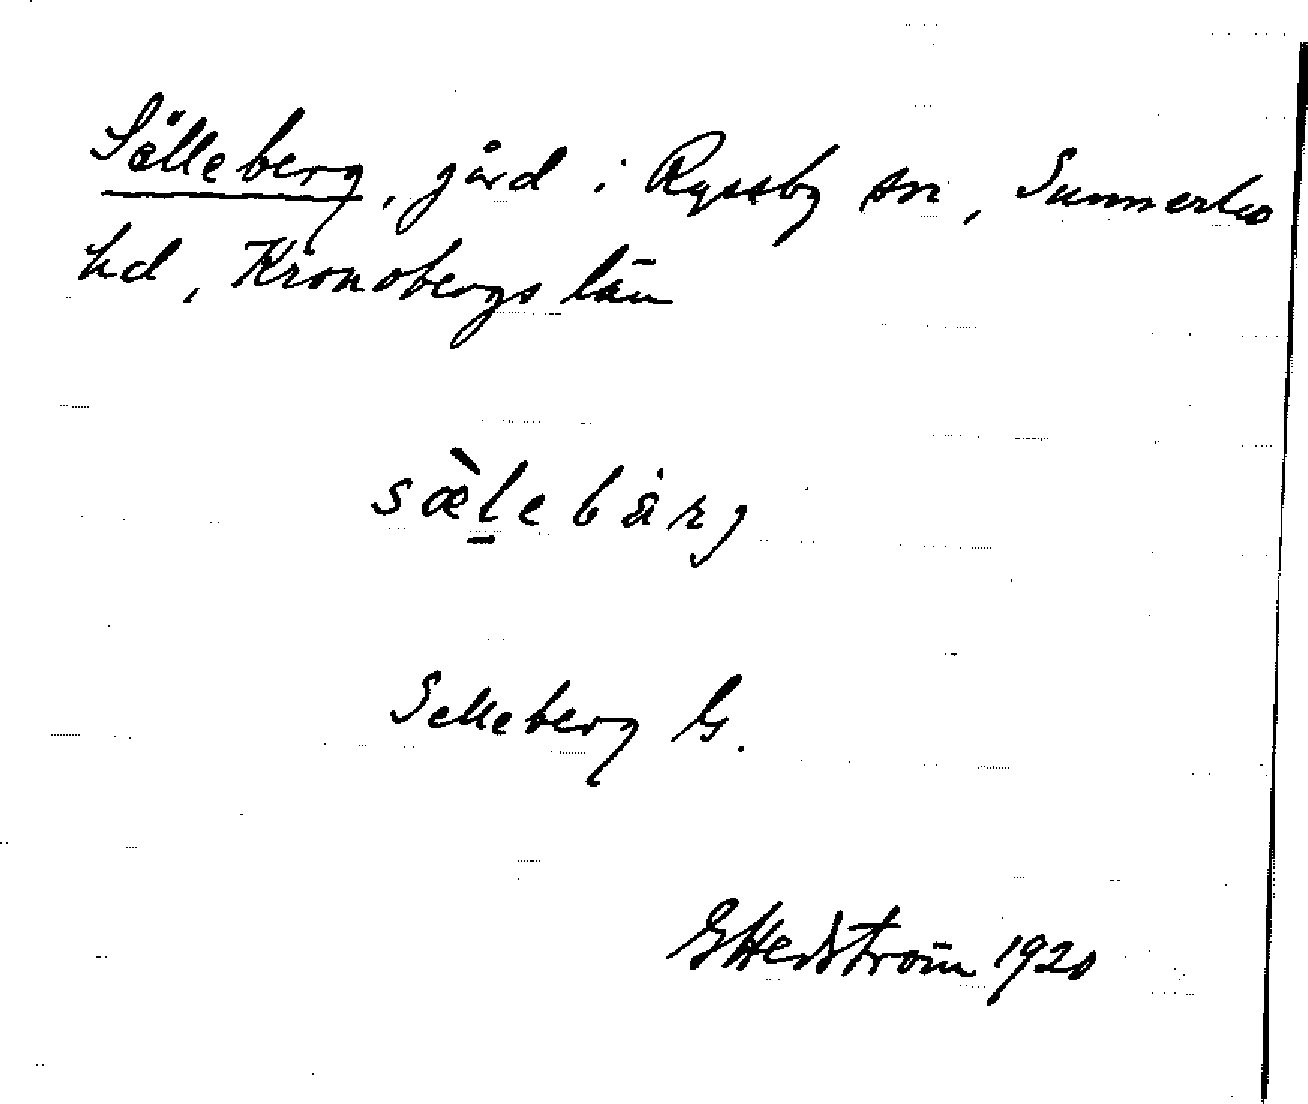 Sälleberg, gård i Ryssby sn, Sunnerbo
hd, Kronobergs län
sæ̀lebärg
Selleberg G.
G Hedström 1920